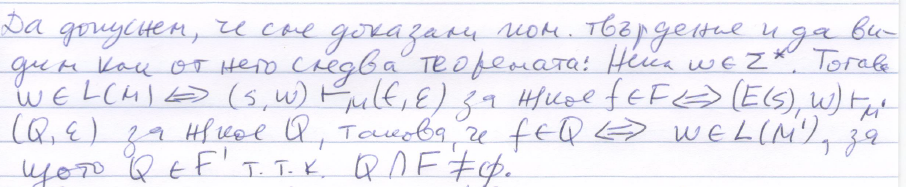 Да допуснем, че сме доказали пом. твърдение и да ви-
дим как от него следва теоремата: Нека w ∈ Σ*. Тогава
w ∈ L(M) ⇔ (s, w) ⊢_M (f, ε) за някое f ∈ F ⇔ (E(s), w) ⊢_M'
(Q, ε) за някое Q, такова, че f ∈ Q ⇔ w ∈ L(M'), за
щото Q ∈ F' т.т.к. Q ∩ F ≠ ф.